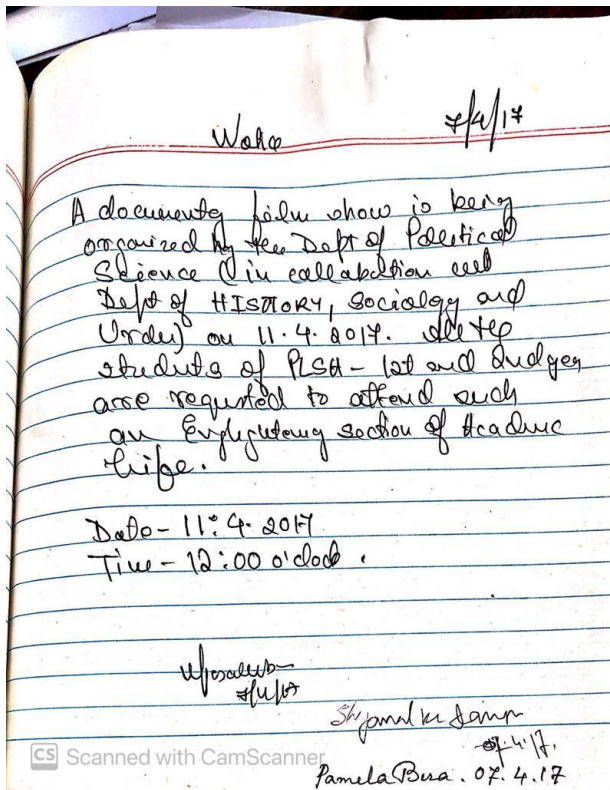 7/4/17
Notice
A documenty film show is being
organized by the Dept of Political
Science (in collabotion with
Dept of HISTORY, Sociology and
Urdu) on 11.4.2017. All the
students of PLSA - 1st and 2nd year
are requsted to attend such
an Englightening section of Academic
life.
Date - 11.4.2017
Time - 12:00 o'clock.
7/4/17
Shyamal Kr
07.4.17.
Pamela Bera. 07.4.17
CS Scanned with CamScanner